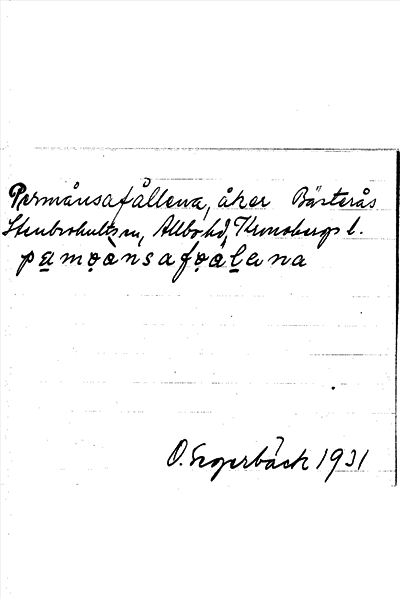 Permånsafållena, åker Bästerås
Stenbrohults sn, Allbo hd, Kronobergs l.
pa̲mo̤ànsafo̤ála̲na
O. Segerbäck 1931